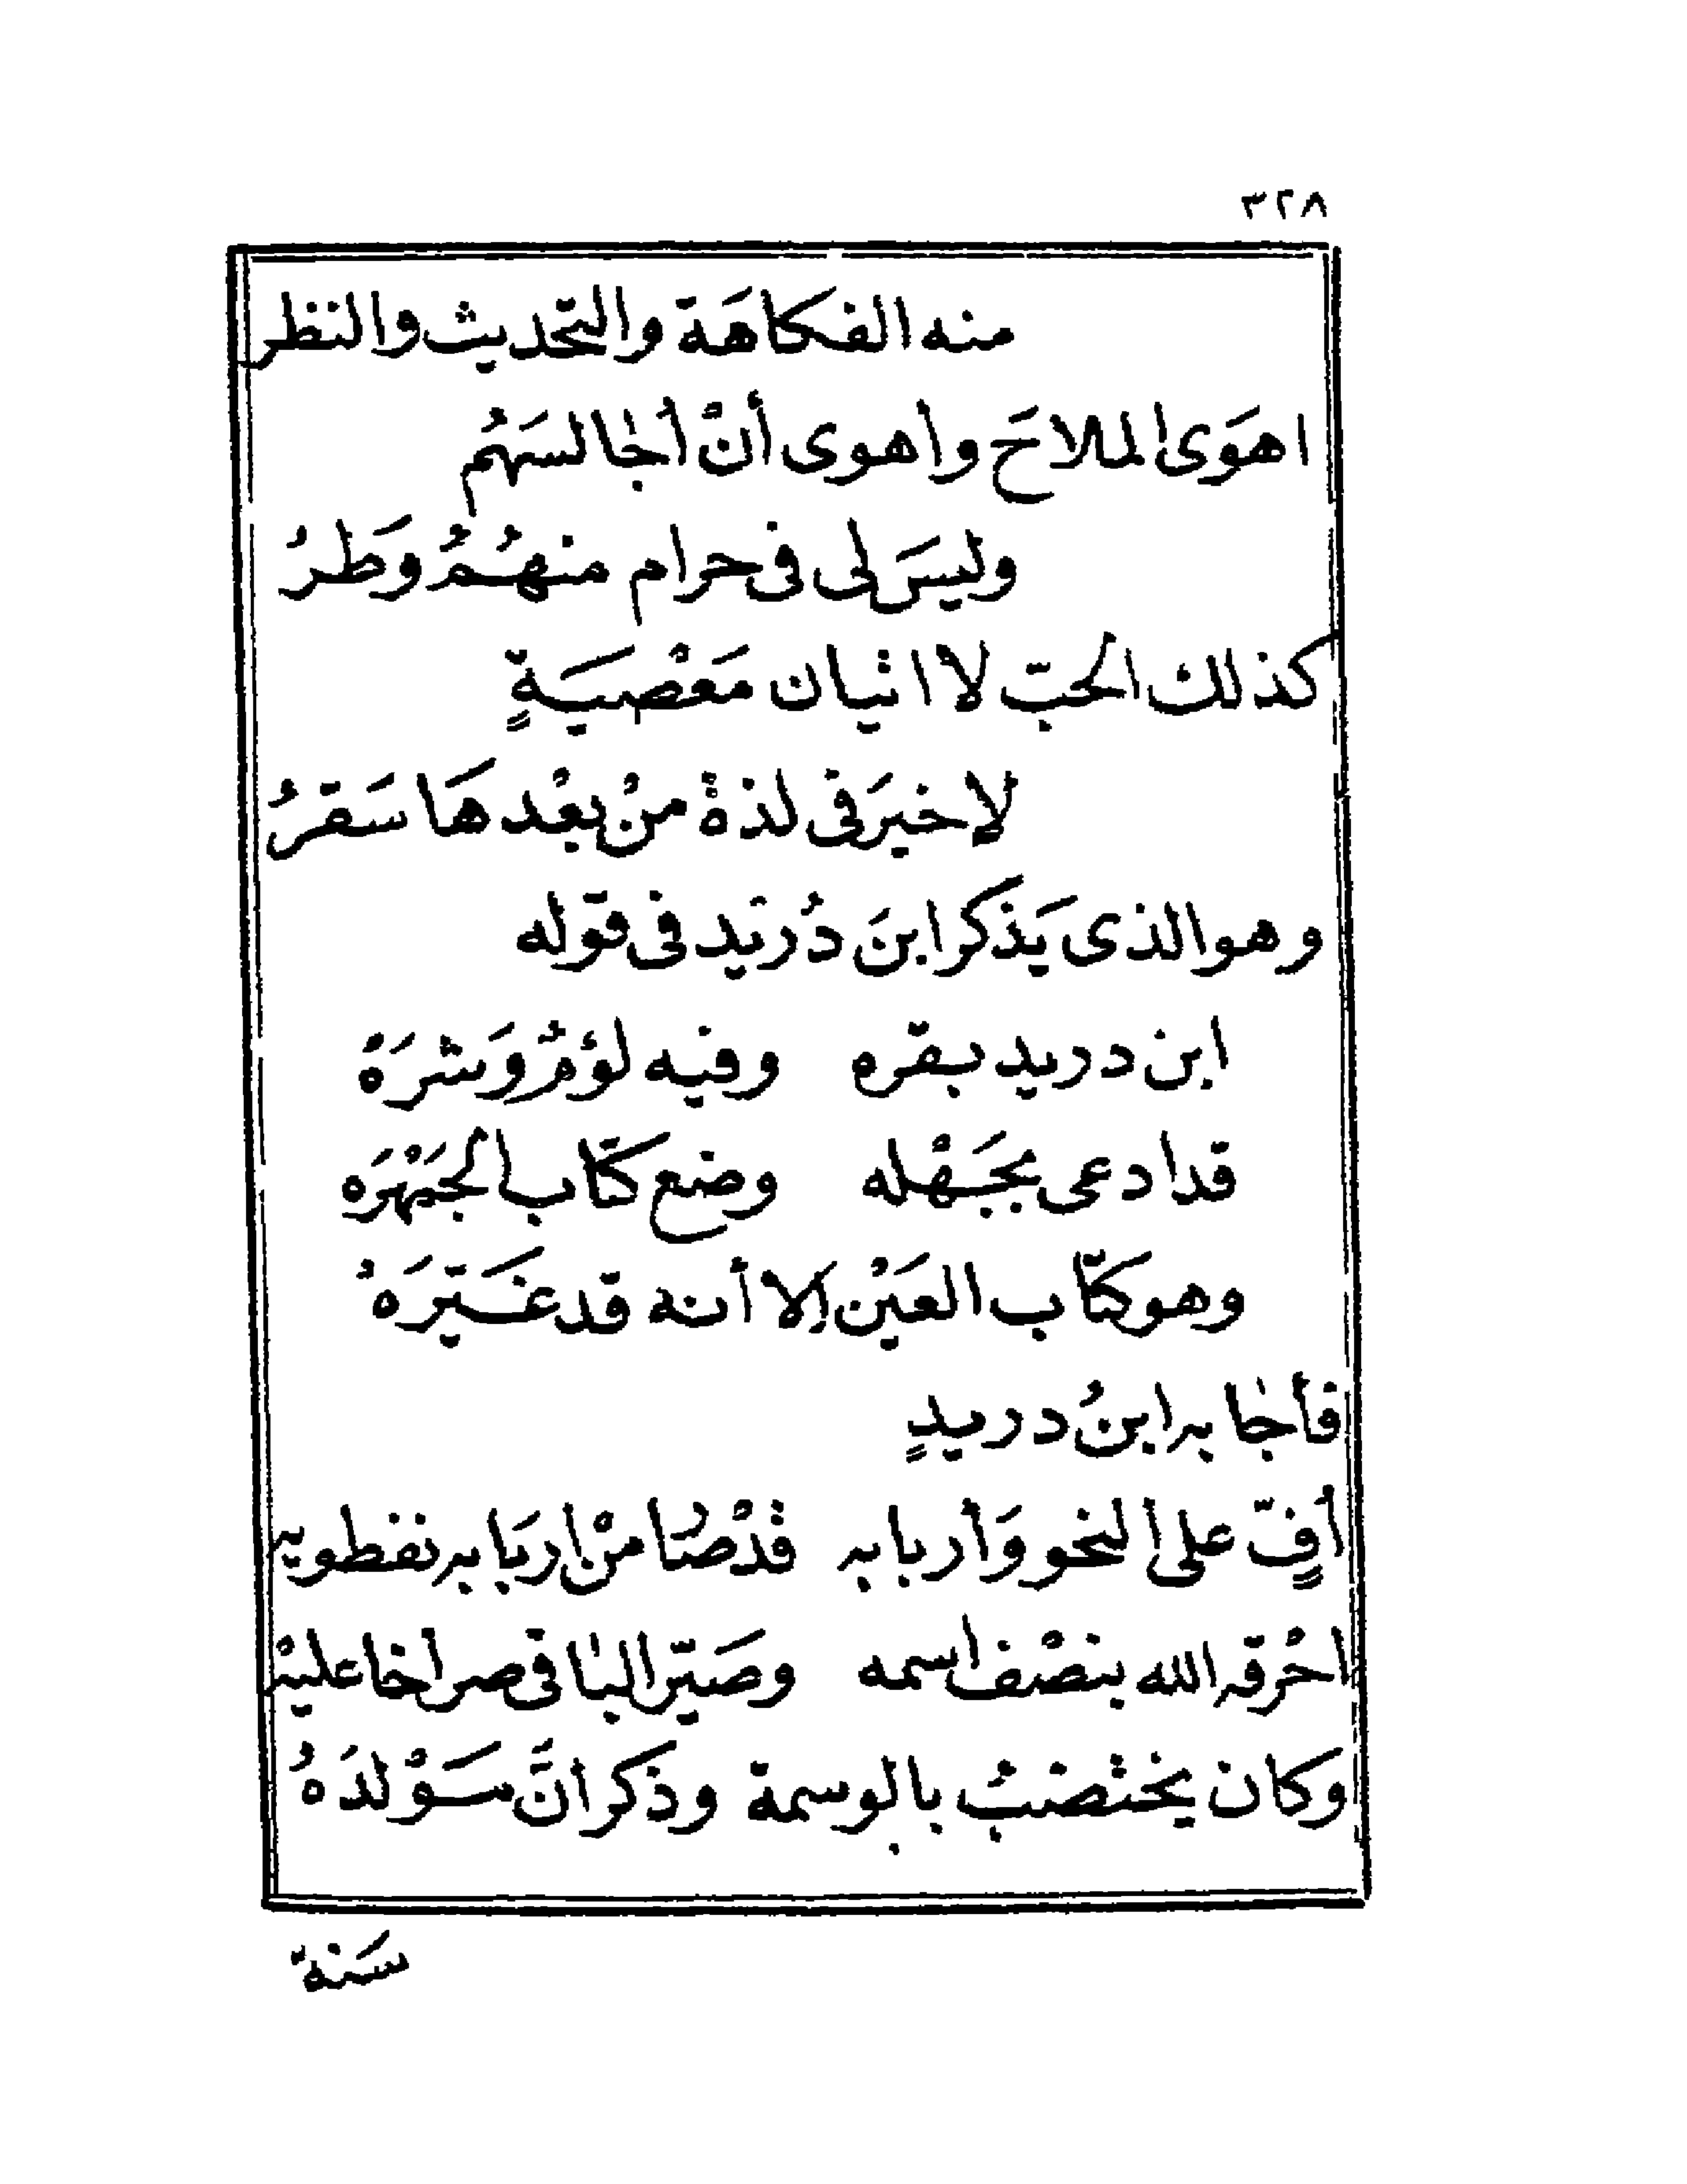 ٣٢٨
منه الفكاهَة والتحديث والنظر
اهوَى الملاحَ وأهوى أنْ أُجالسَهُم
وليسَ لى فى حرام منهُمُ وَطرُ
كذلك الحبّ لا اتيان مَعْصيَةٍ
لا خيرَ فى لذة منْ بعْدهَا سَقرُ
وهو الذى يَذكر ابنَ دُريد فى قوله
ابن دريد بقره وفيه لؤمٌ وَشرَهْ
قد ادعى بجَهْله وضع كتاب الجَمْهرَه
وهو كتاب العَيْن إلا أنه قد غَيّرَهْ
فأجابه ابنُ دريدٍ
أفٍّ على النحو وَأربابه قدْ صار منْ اربَابه نفطويه
احْرقه الله بنصْف اسمه وصَيّر البا فى صراخا عليْه
وكان يختضبُ بالوسمة وذكر انَّ سَوْلدَهُ
سَنة